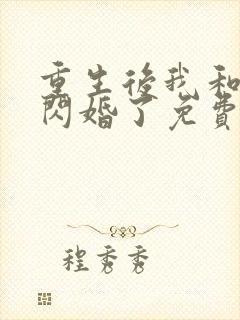 重生後我和
閃婚了免費
程秀秀